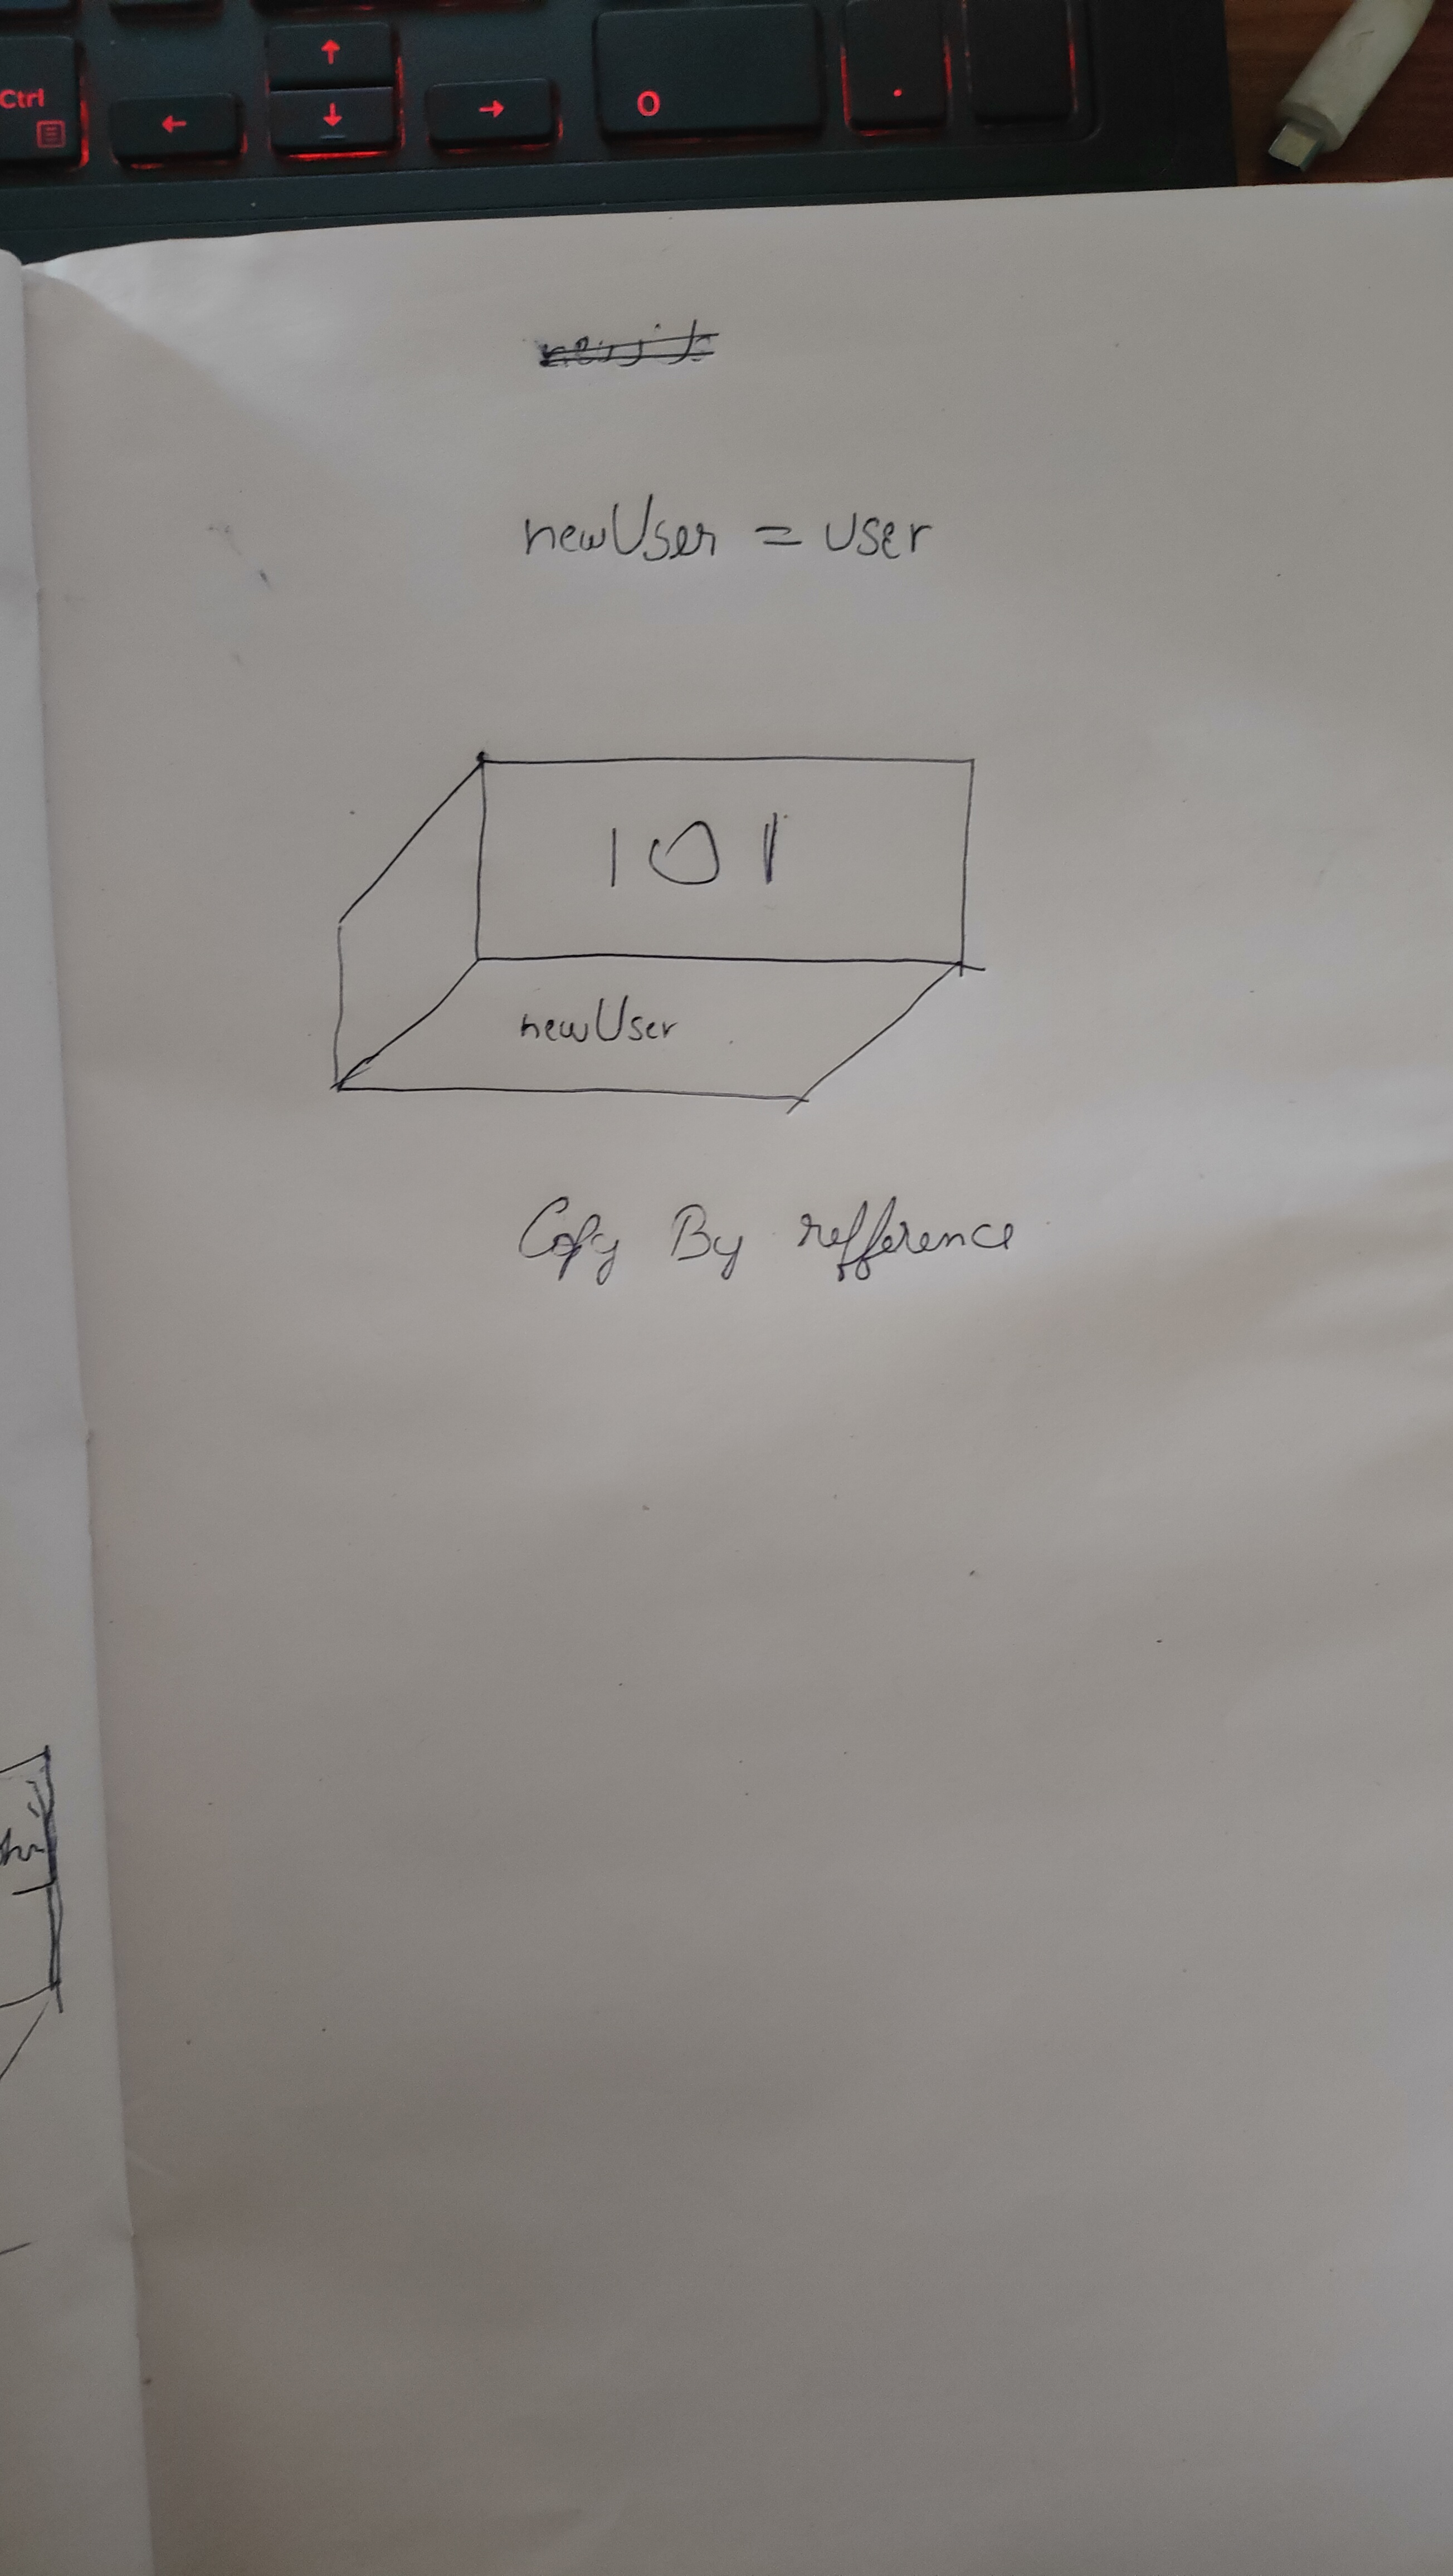 Ctrl
0
.
newUser = user
101
newUser
Copy By refference